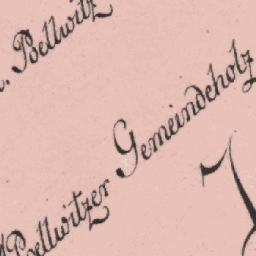 Poellwitz
Poellwitzer Gemeindeholz